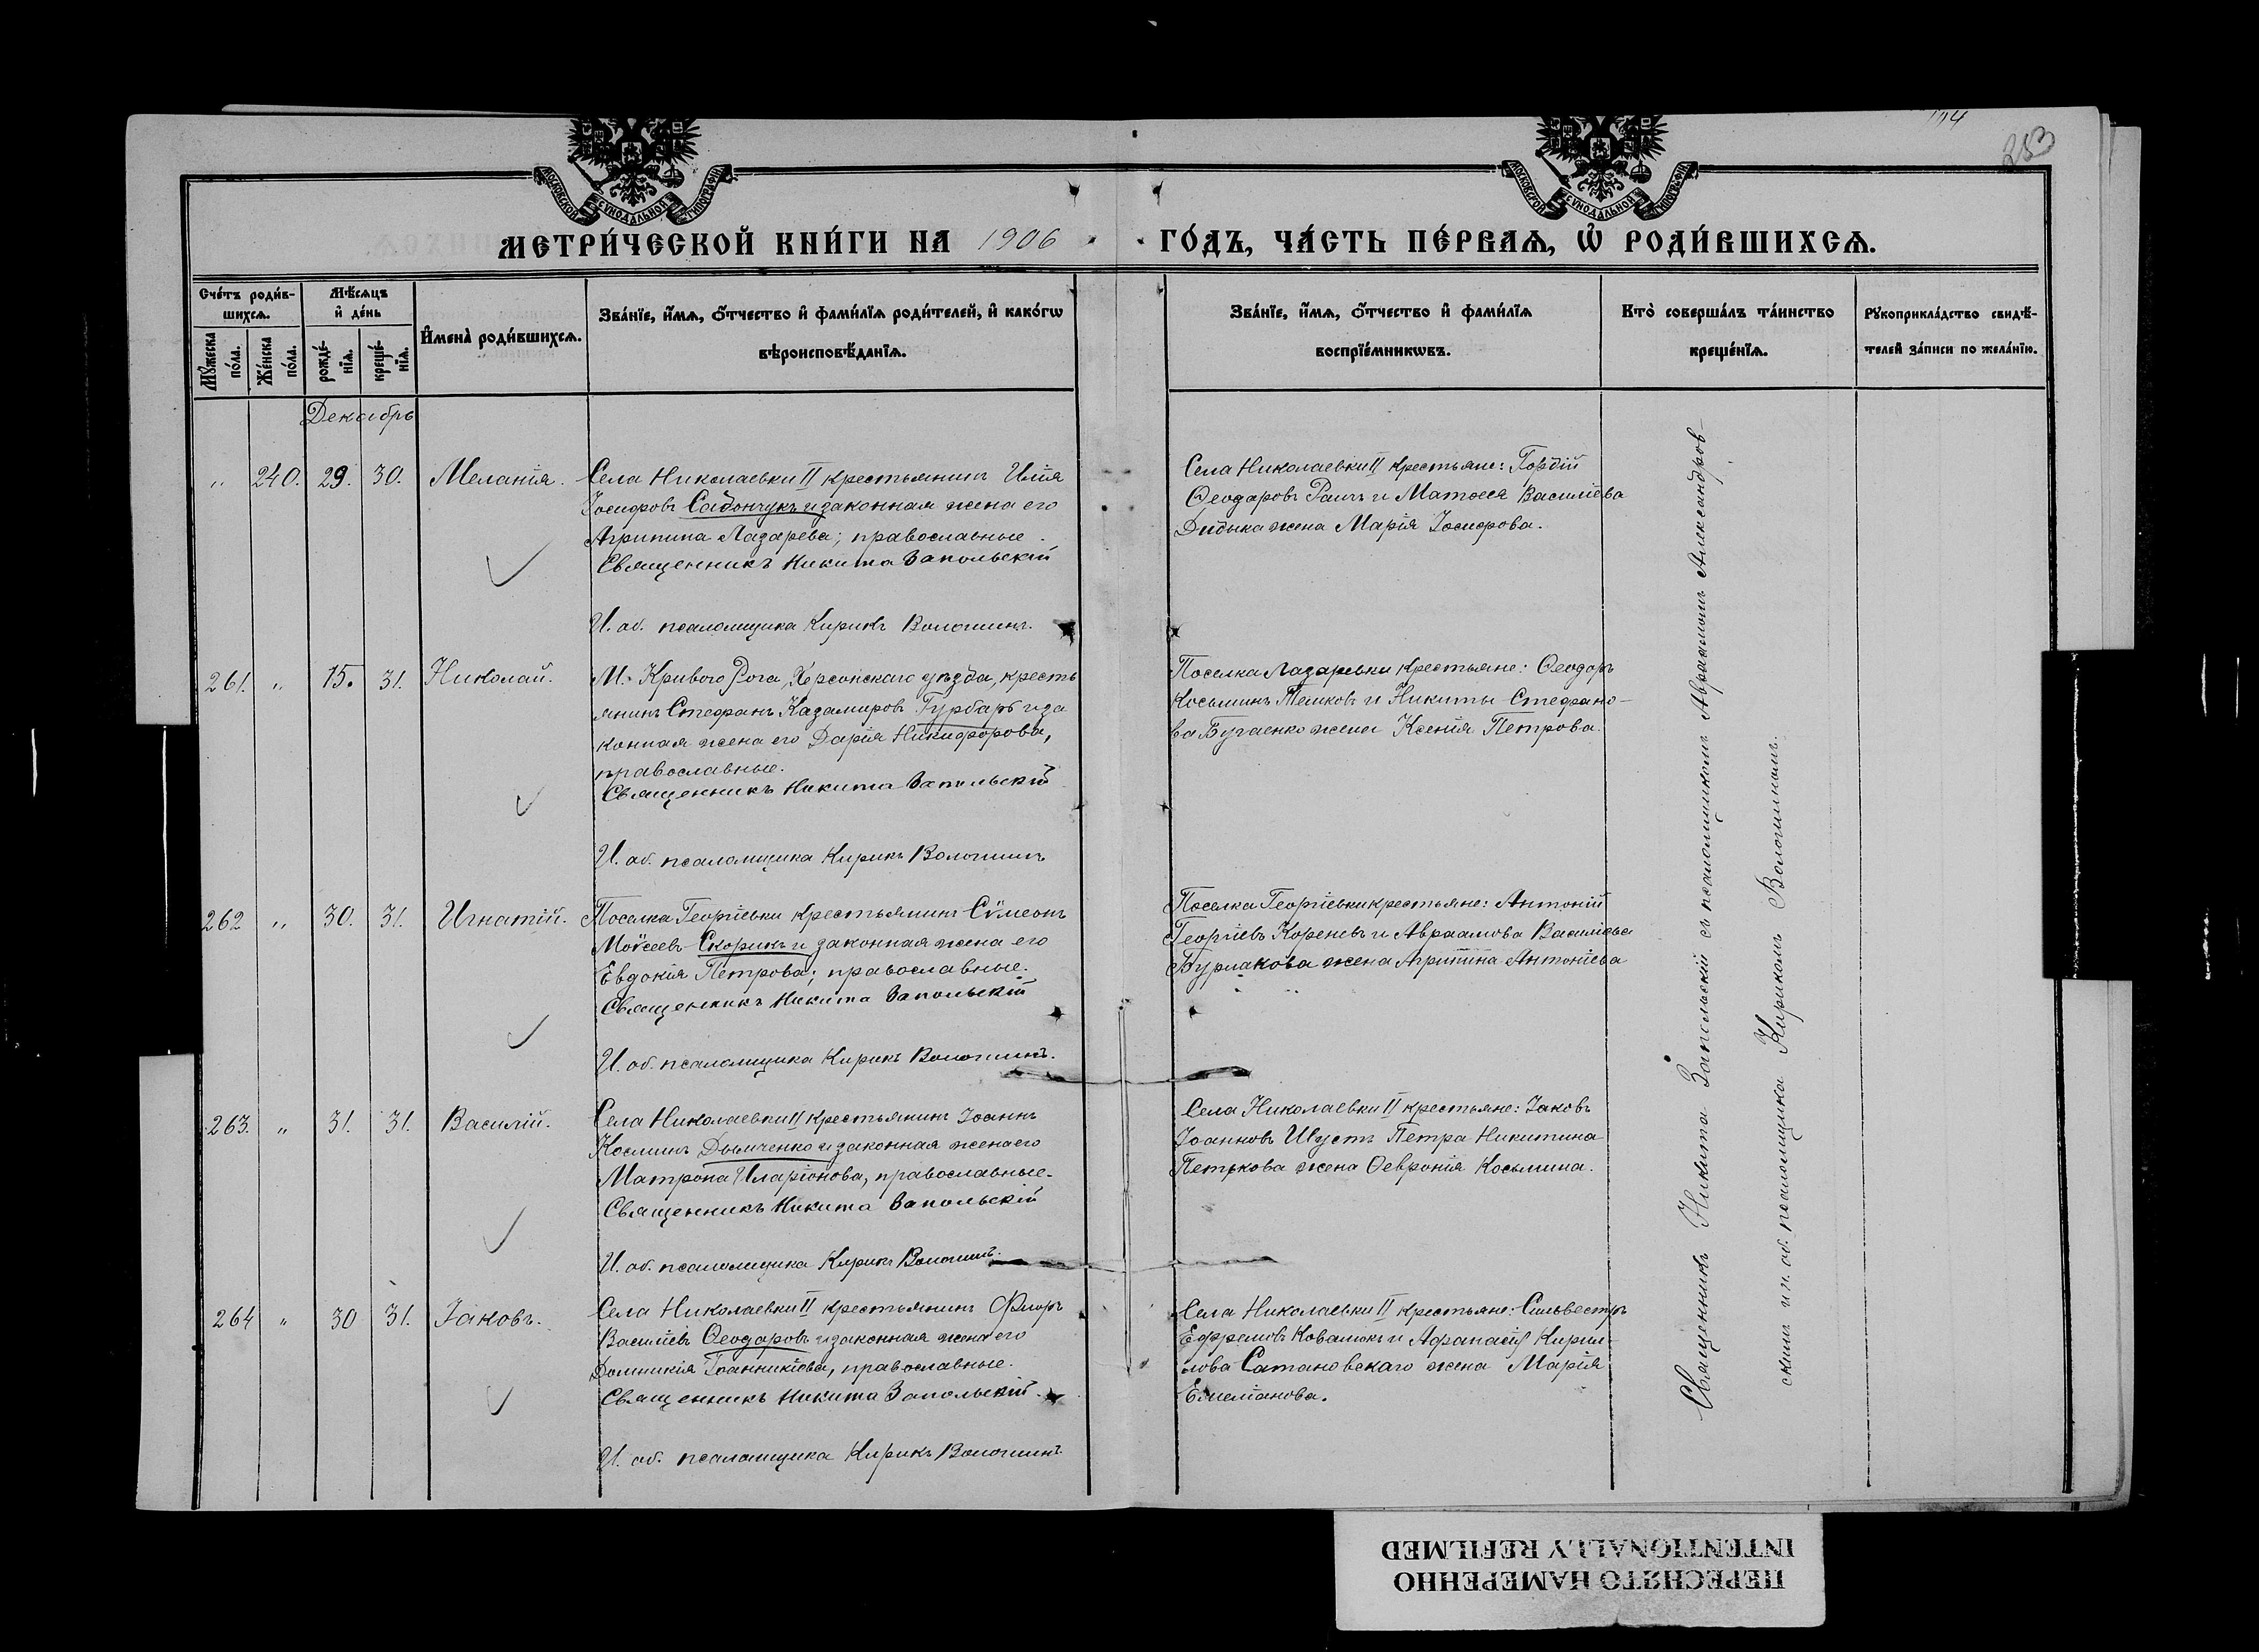 253
МОСКОВСКОЙ СѴНОДАЛЬНОЙ ТИПОГРАФІИ
МОСКОВСКОЙ СѴНОДАЛЬНОЙ ТИПОГРАФІИ
МЕТРИ́ЧЕСКОЙ КНИ́ГИ НА 1906 ГО́ДЪ, ЧА́СТЬ ПЕ́РВАѦ, Ѡ҆ РОДИ́ВШИХСѦ.
Сче́тъ роди́в-
шихсѧ.
Мꙋ́жеска по́ла.
Же́нска по́ла.
Мѣ́сѧцъ и҆ де́нь
рожде́-
нїѧ.
креще́-
нїѧ.
И҆мена̀ роди́вшихсѧ.
Зва́нїе, и҆́мѧ, ѻ҆́тчество и҆ фами́лїѧ роди́телей, и҆ како́гѡ
вѣроисповѣ́данїѧ.
Зва́нїе, и҆́мѧ, ѻ҆́тчество и҆ фами́лїѧ
воспрїе́мникѡвъ.
Кто̀ соверша́лъ та́инство
креще́нїѧ.
Рꙋкоприкла́дство свидѣ́-
телей за́писи по жела́нїю.
Декабрь
„ 240. 29. 30. Меланія.
Села Николаевки II крестьянинъ Илія
Іосифовъ Сабончукъ и законная жена его
Агрипина Лазарева; православные.
Священникъ Никита Запольскій
И. об. псаломщика Кирикъ Волошинъ.
Села Николаевки II крестьяне: Гордій
Ѳеодоровъ Раичъ и Матѳея Василіева
Дидыка жена Марія Іосифова.
261. „ 15. 31. Николай.
М. Кривого Рога, Херсонскаго уѣзда, кресть
янинъ Стефанъ Казамировъ Гурбаръ и за
конная жена его Дарія Никифорова,
православные.
Священникъ Никита Запольскій
И. об. псаломщика Кирикъ Волошинъ
Поселка Лазаревки крестьяне: Ѳеодоръ
Косьминъ Теликовъ и Никиты Стефано-
ва Бугаенко жена Ксенія Петрова.
262 „ 30. 31. Игнатій.
Поселка Георгіевки крестьянинъ Сѵмеонъ
Моѵсеевъ Скорикъ и законная жена его
Евдокія Петрова; православные.
Священникъ Никита Запольскій
И. об. псаломщика Кирикъ Волошинъ.
Поселка Георгіевки крестьяне: Антоній
Георгіевъ Кореневъ и Авраамова Василіева
Бурлакова жена Агрипина Антоніева
263. „ 31. 31. Василій.
Села Николаевки II крестьянинъ Іоаннъ
Косминъ Дымченко и законная жена его
Матрона Иларіонова, православные.
Священникъ Никита Запольскій
И. об. псаломщика Кирикъ Волошинъ.
Села Николаевки II крестьяне: Іаковъ
Іоанновъ Ивусть Петра Никитина
Петькова жена Ѳевронія Косьмина.
264 „ 30 31. Іаковъ.
Села Николаевки II крестьянинъ Флоръ
Василіевъ Ѳеодоровъ и законная жена его
Домникія Іоанникіева, православные.
Священникъ Никита Запольскій.
И. об. псаломщика Кирикъ Волошинъ
Села Николаевки II крестьяне: Сильвестръ
Ефремовъ Ковалюкъ и Афанасія Кирил-
лова Сатановскаго жена Марія
Емеліанова.
Священникъ Никита Запольскій съ псаломщикомъ Авраамомъ Александров-
скимъ и и. об. псаломщика Кирикомъ Волошиномъ.
ПЕРЕСНЯТО НАМЕРЕННО
INTENTIONALLY REFILMED